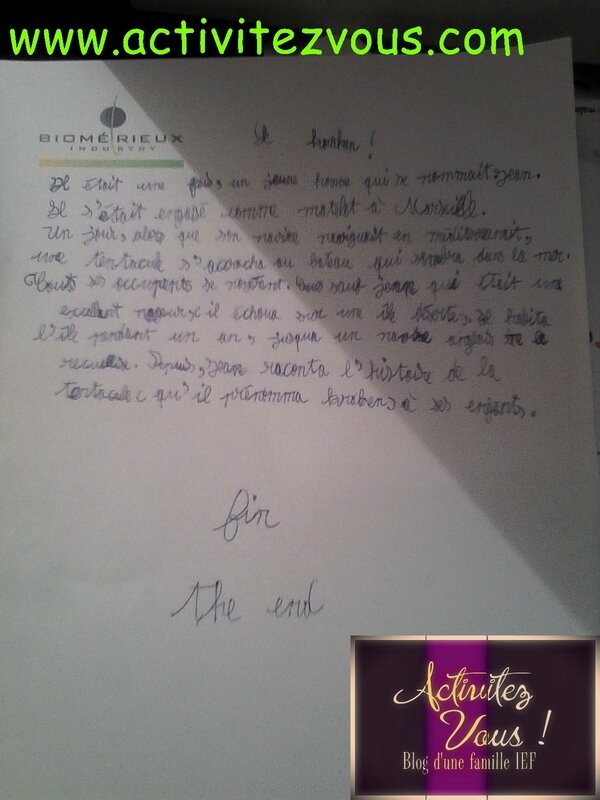 www.activitezvous.com
BIOMÉRIEUX
INDUSTRY
Le kraken !
Il était une fois, un jeune homme qui se nommait Jean.
Il s'était engagé comme matelot à Marseille.
Un jour, alors que son navire naviguait en
une tentacule s'accrocha au bateau qui sombra dans la mer.
Touts ses occupants se noyèrent. tous sauf jean qui était une
excellant nageur, il échoua sur une île déserte. Il habita
l'île pendant un an, jusqua un navire anglais le
recueillie. Depuis, jean raconta l'histoire de la
tentacule qu'il prénomma kraken, à ses enfants.
fin
The end
Activitez
Vous !
Blog d'une famille IEF